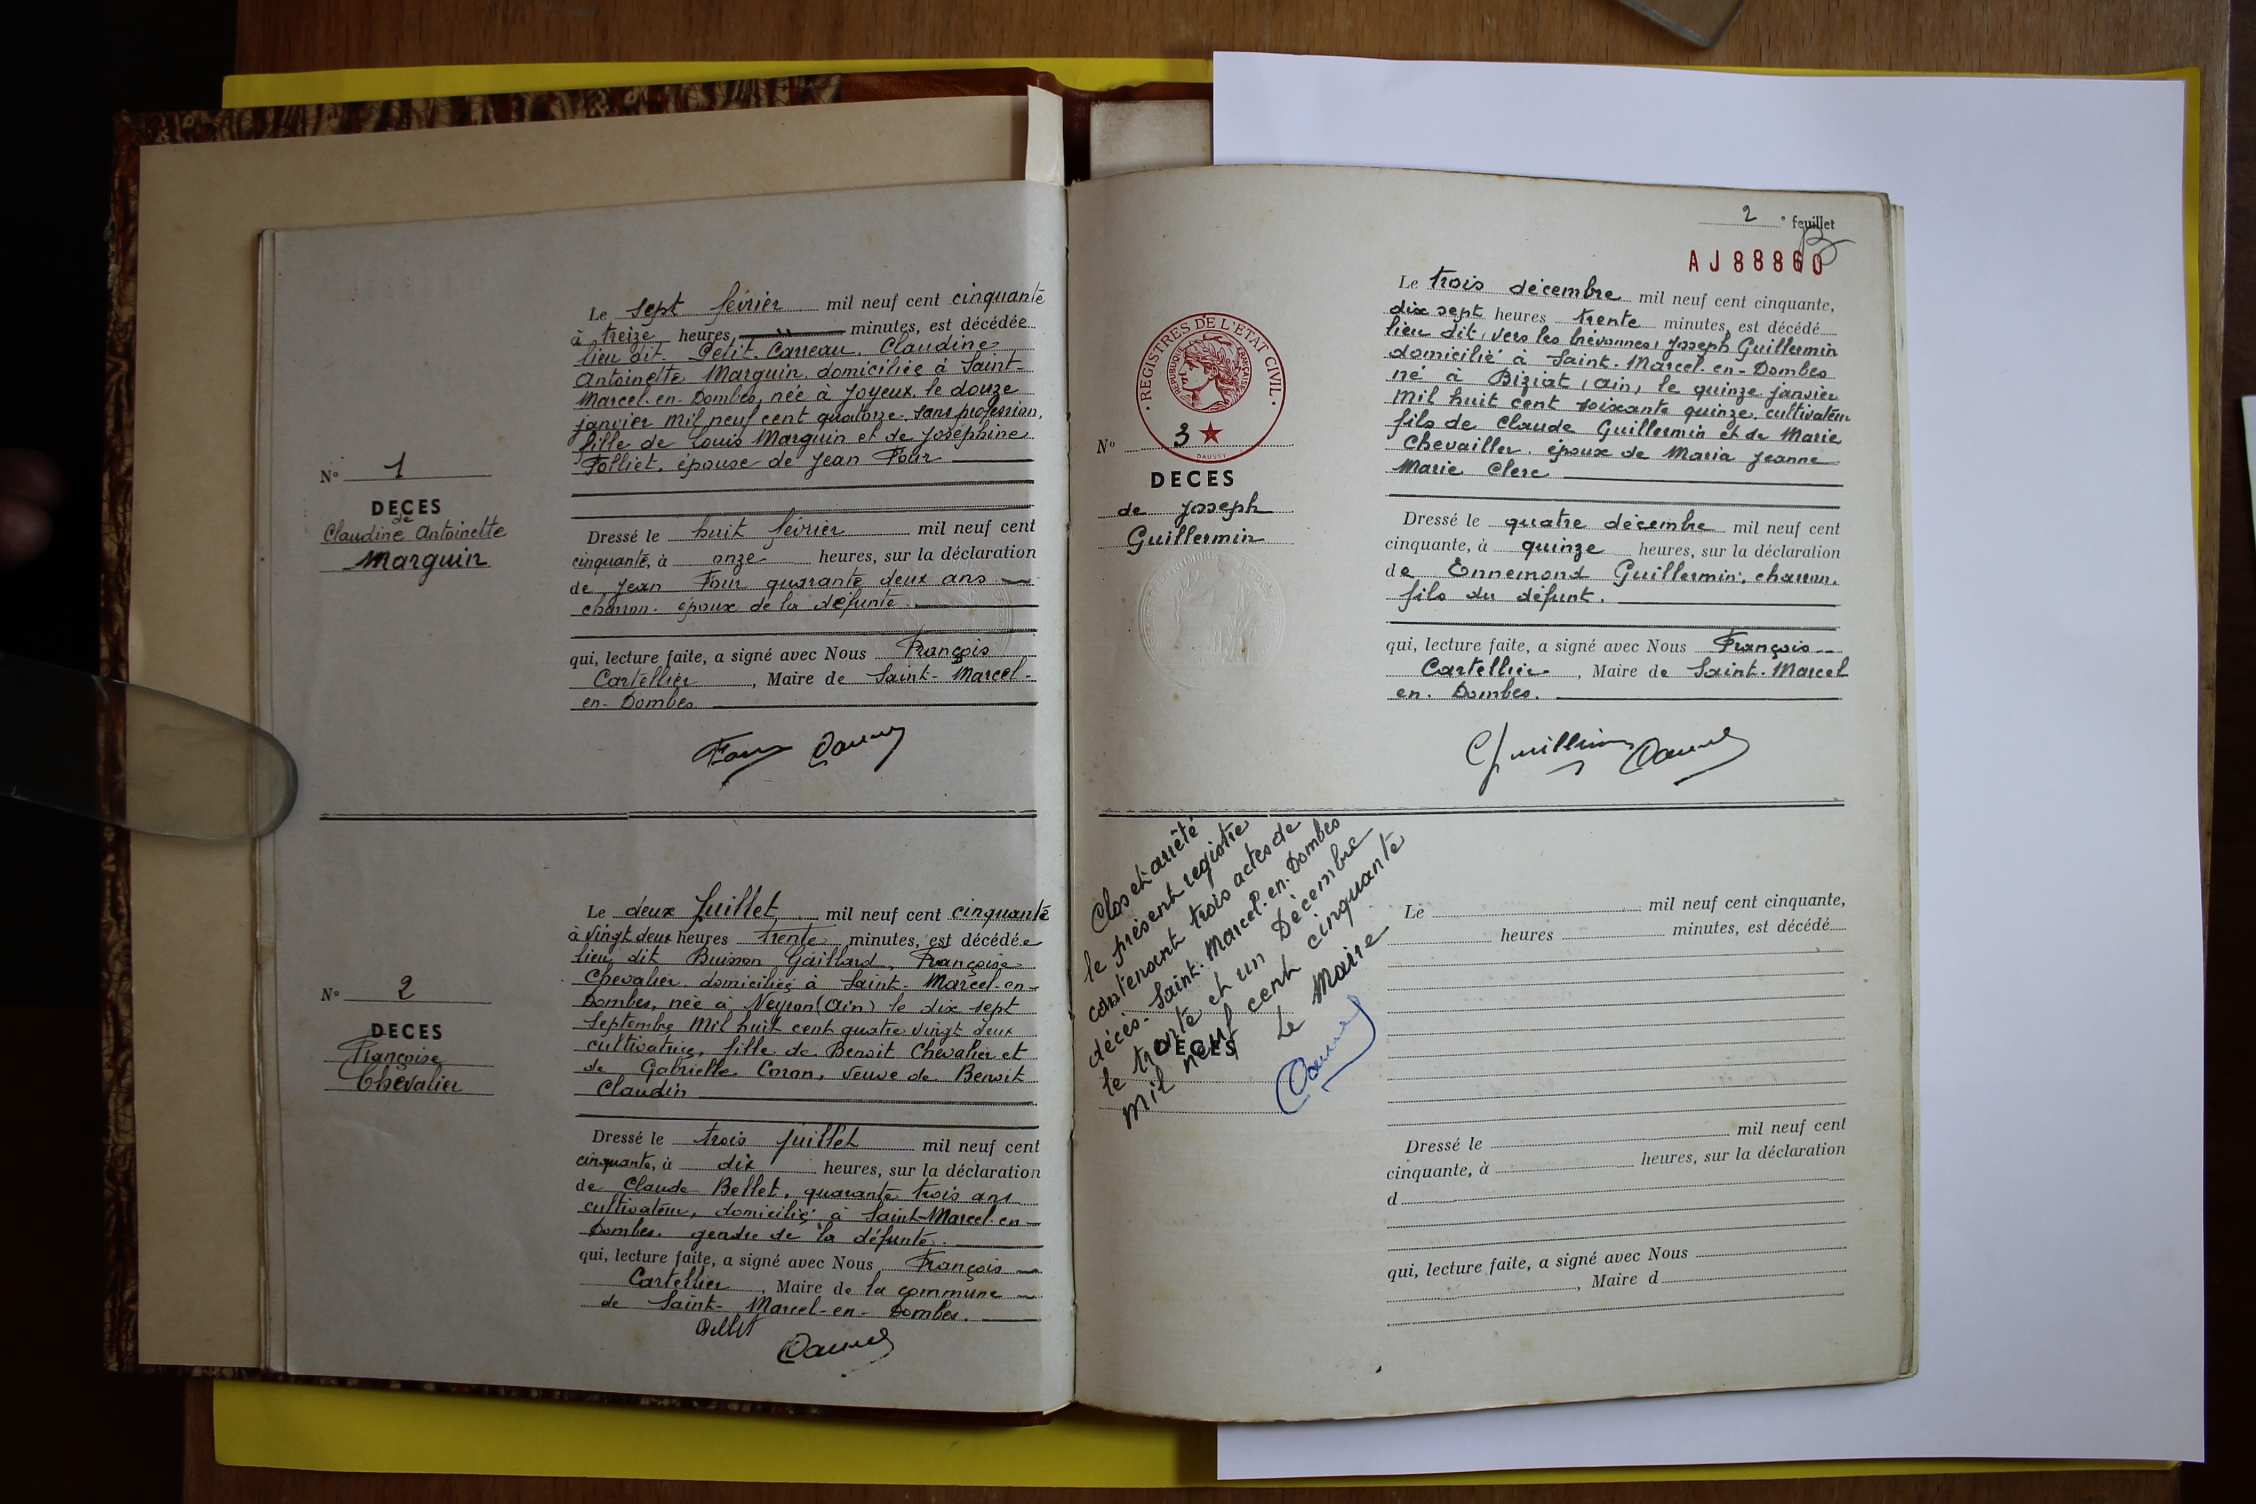 Le sept février mil neuf cent cinquante
à treize heures, minutes, est décédée
lieu dit. Petit. Carreau. Claudine
Antoinette Marguin. domiciliée à Saint-
Marcel-en-Dombes, née à Joyeux. le douze
janvier mil neuf cent quatorze. sans profession,
fille de Louis Marguin et de Joséphine
Folliet, épouse de Jean Four
N° 1
DECES
de
Claudine Antoinette
Marguin
Dressé le huit février mil neuf cent
cinquante, à onze heures, sur la déclaration
de Jean Four quarante deux ans
charron. époux de la défunte.
qui, lecture faite, a signé avec Nous François
Cartellier, Maire de Saint-Marcel-
en-Dombes
Four
Le deux Juillet, mil neuf cent cinquante
à vingt deux heures trente minutes, est décédée
lieu dit Buisson Gaillard, Françoise
Chevalier domiciliée à Saint-Marcel-en-
Dombes, née à Neyron (Ain) le dix sept
Septembre Mil huit cent quatre vingt deux
cultivatrice, fille de Benoit Chevalier et
de Gabrielle Coron, veuve de Benoit
Claudin
N° 2
DECES
Françoise
Chevalier
Dressé le trois juillet mil neuf cent
cinquante, à dix heures, sur la déclaration
de Claude Bellet, quarante trois ans
cultivateur, domicilié à Saint-Marcel-en-
Dombes. gendre de la défunte.
qui, lecture faite, a signé avec Nous François
Cartellier, Maire de la commune
de Saint-Marcel-en-Dombes.
Bellet
2 e feuillet
AJ88860
Le trois décembre mil neuf cent cinquante,
dix sept heures trente minutes, est décédé
lieu dit, vers les Brévonnes, Joseph Guillermin
domicilié à Saint-Marcel-en-Dombes
né à Biziat, (Ain), le quinze janvier
Mil huit cent soixante quinze. cultivateur
fils de Claude Guillermin et de Marie
Chevailler. époux de Maria Jeanne
Marie Clerc
REGISTRES DE L'ETAT CIVIL
REPUBLIQUE FRANÇAISE
DAUVEY
N° 3
DECES
de Joseph
Guillermin
Dressé le quatre décembre mil neuf cent
cinquante, à quinze heures, sur la déclaration
de Ennemond Guillermin, charron.
fils du défunt.
qui, lecture faite, a signé avec Nous François
Cartellier, Maire de Saint-Marcel
en-Dombes.
Guillermin
Clos et arrêté
le présent registre
contenant trois actes de
décès. Saint-Marcel-en-Dombes
le trente et un Décembre
mil neuf cent cinquante
Le Maire
DECES
Le mil neuf cent cinquante,
heures minutes, est décédé
Dressé le mil neuf cent
cinquante, à heures, sur la déclaration
d
qui, lecture faite, a signé avec Nous
, Maire d